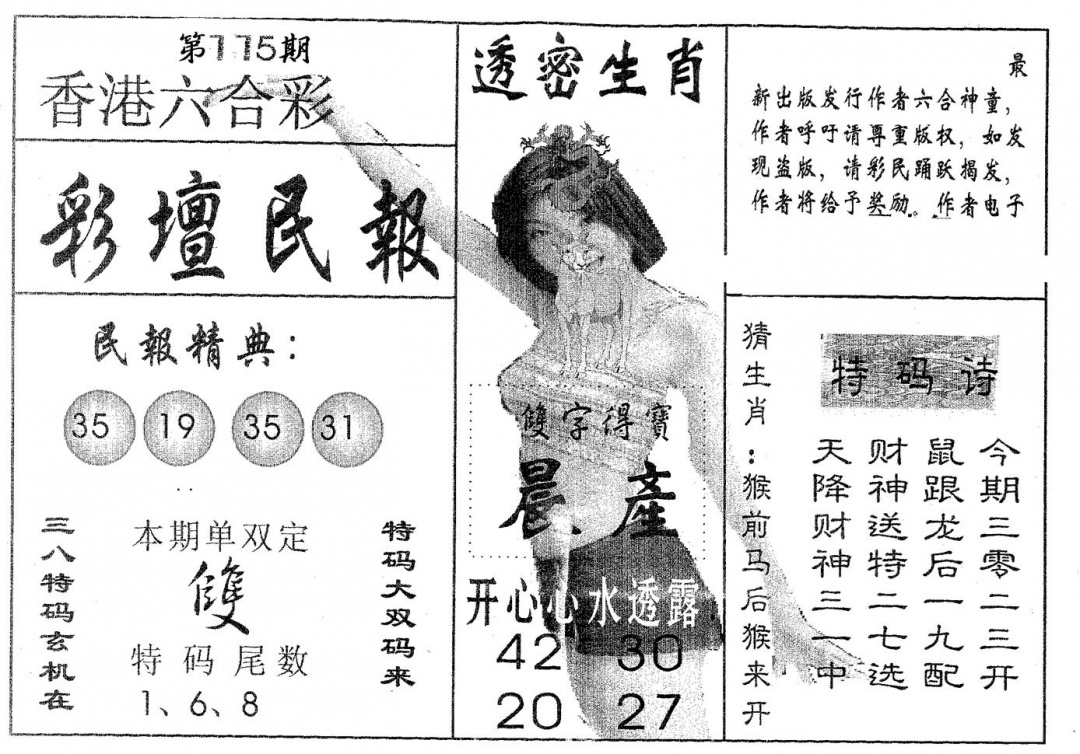 第115期
香港六合彩
彩壇民報
民報精典：
35 19 35 31
三八特码玄机在
本期单双定
雙
特码尾数
1、6、8
特码大双码来
透密生肖
雙字得寶
晨 產
开心心水透露
42 30
20 27
最
新出版发行作者六合神童，
作者呼吁请尊重版权，如发
现盗版，请彩民踊跃揭发，
作者将给予奖励。作者电子
猜生肖：猴前马后猴来开
特码诗
今期三零二三开
鼠跟龙后一九配
财神送特二七选
天降财神三一中